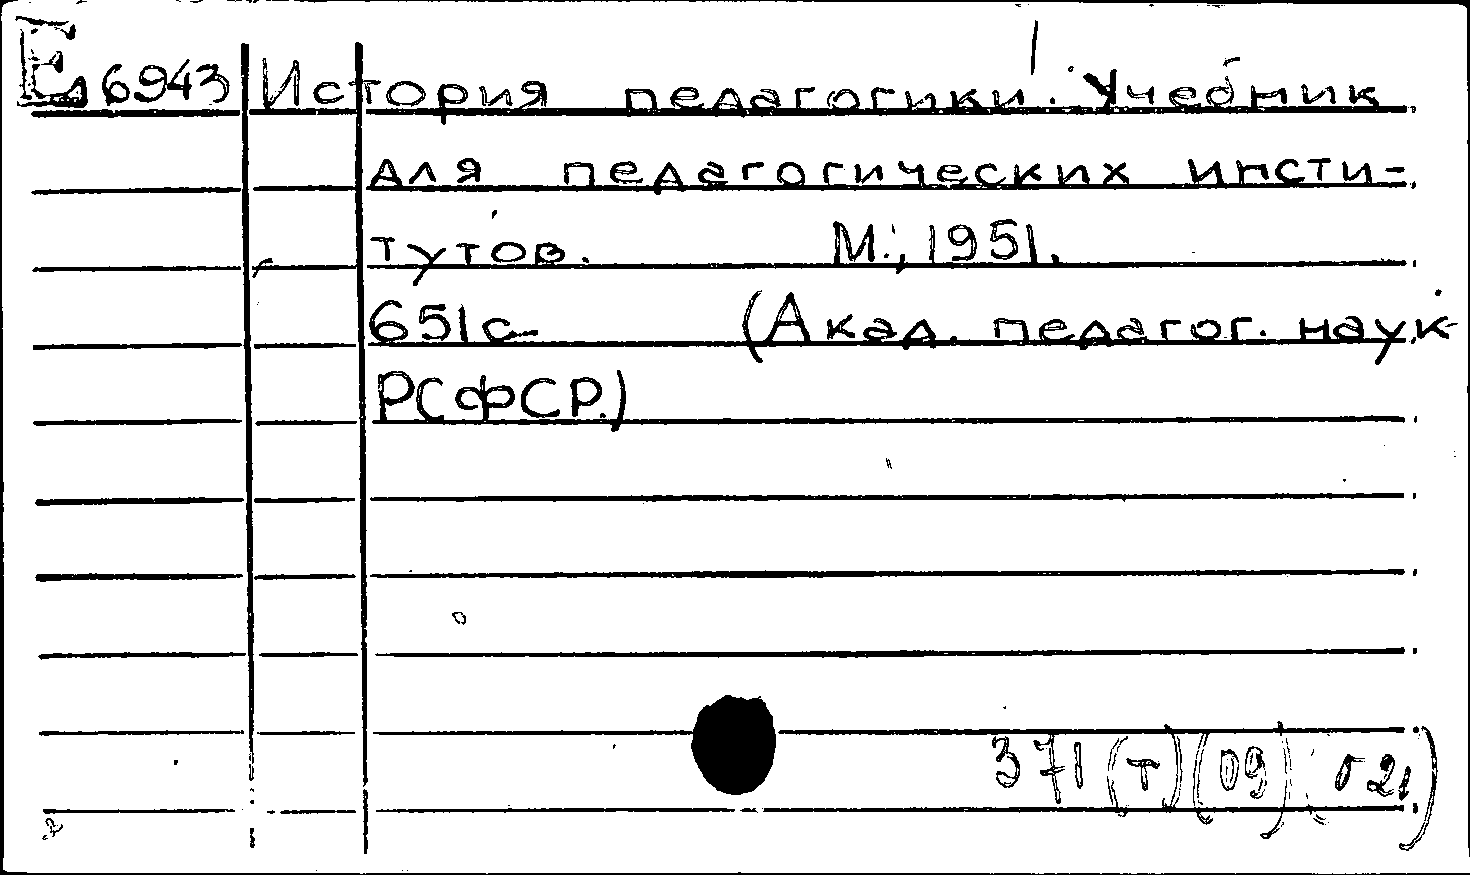 Е 6943 История педагогики. Учебник
для педагогических инсти-
тутов. М., 1951.
651с (Акад. педагог. наук
РСФСР.)
371(т)(09)(021)